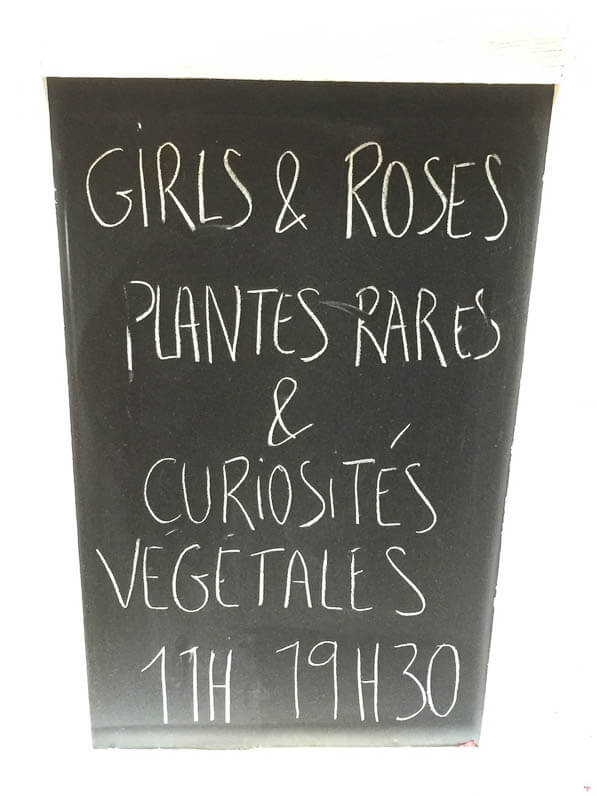 GIRLS & ROSES
PLANTES RARES
&
CURIOSITÉS
VÉGÉTALES
11H 19H30